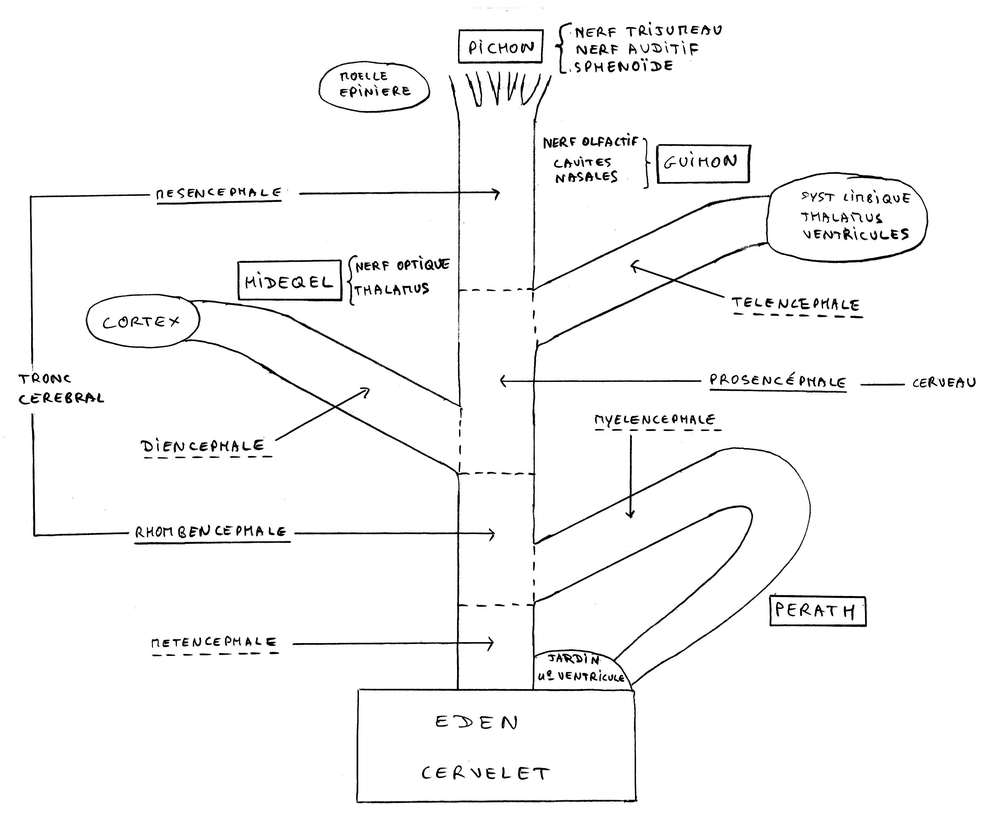 PICHON
NERF TRIJUMEAU
NERF AUDITIF
SPHENOÏDE
MOELLE
EPINIERE
NERF OLFACTIF
CAVITES
NASALES
GUIHON
MESENCEPHALE
SYST LIMBIQUE
THALAMUS
VENTRICULES
HIDEQEL
NERF OPTIQUE
THALAMUS
TELENCEPHALE
CORTEX
TRONC
CEREBRAL
PROSENCÉPHALE
CERVEAU
MYELENCEPHALE
DIENCEPHALE
RHOMBENCEPHALE
PERATH
METENCEPHALE
JARDIN
4e VENTRICULE
EDEN
CERVELET